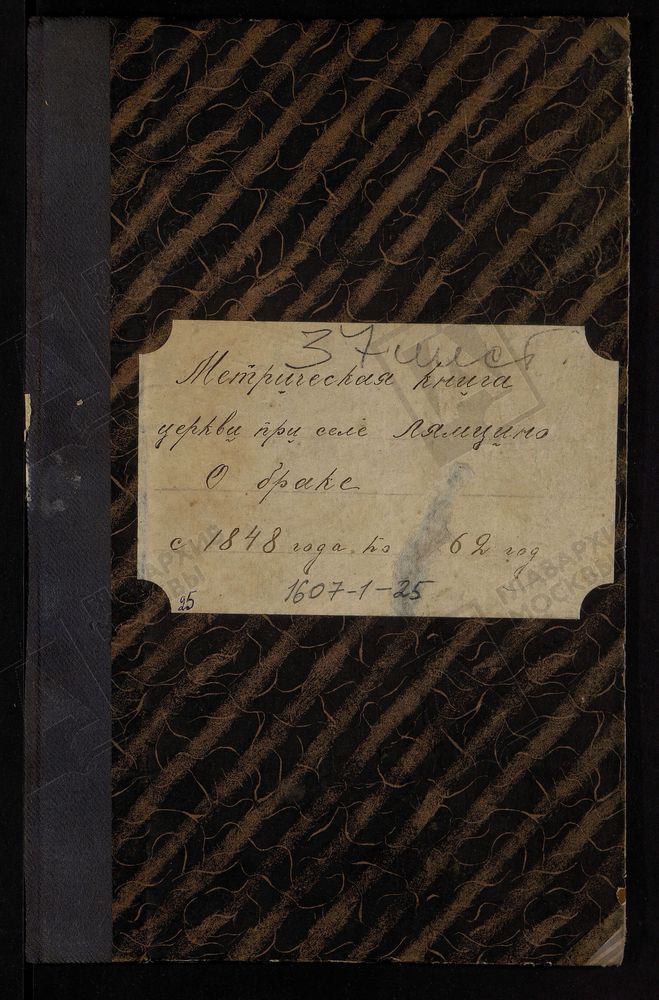 37 лист.
Метрическая книга
церкви при селе Лямцино
О браке
с 1848 года по 62 год
1607-1-25
25
ГЛАВАРХИВ МОСКВЫ